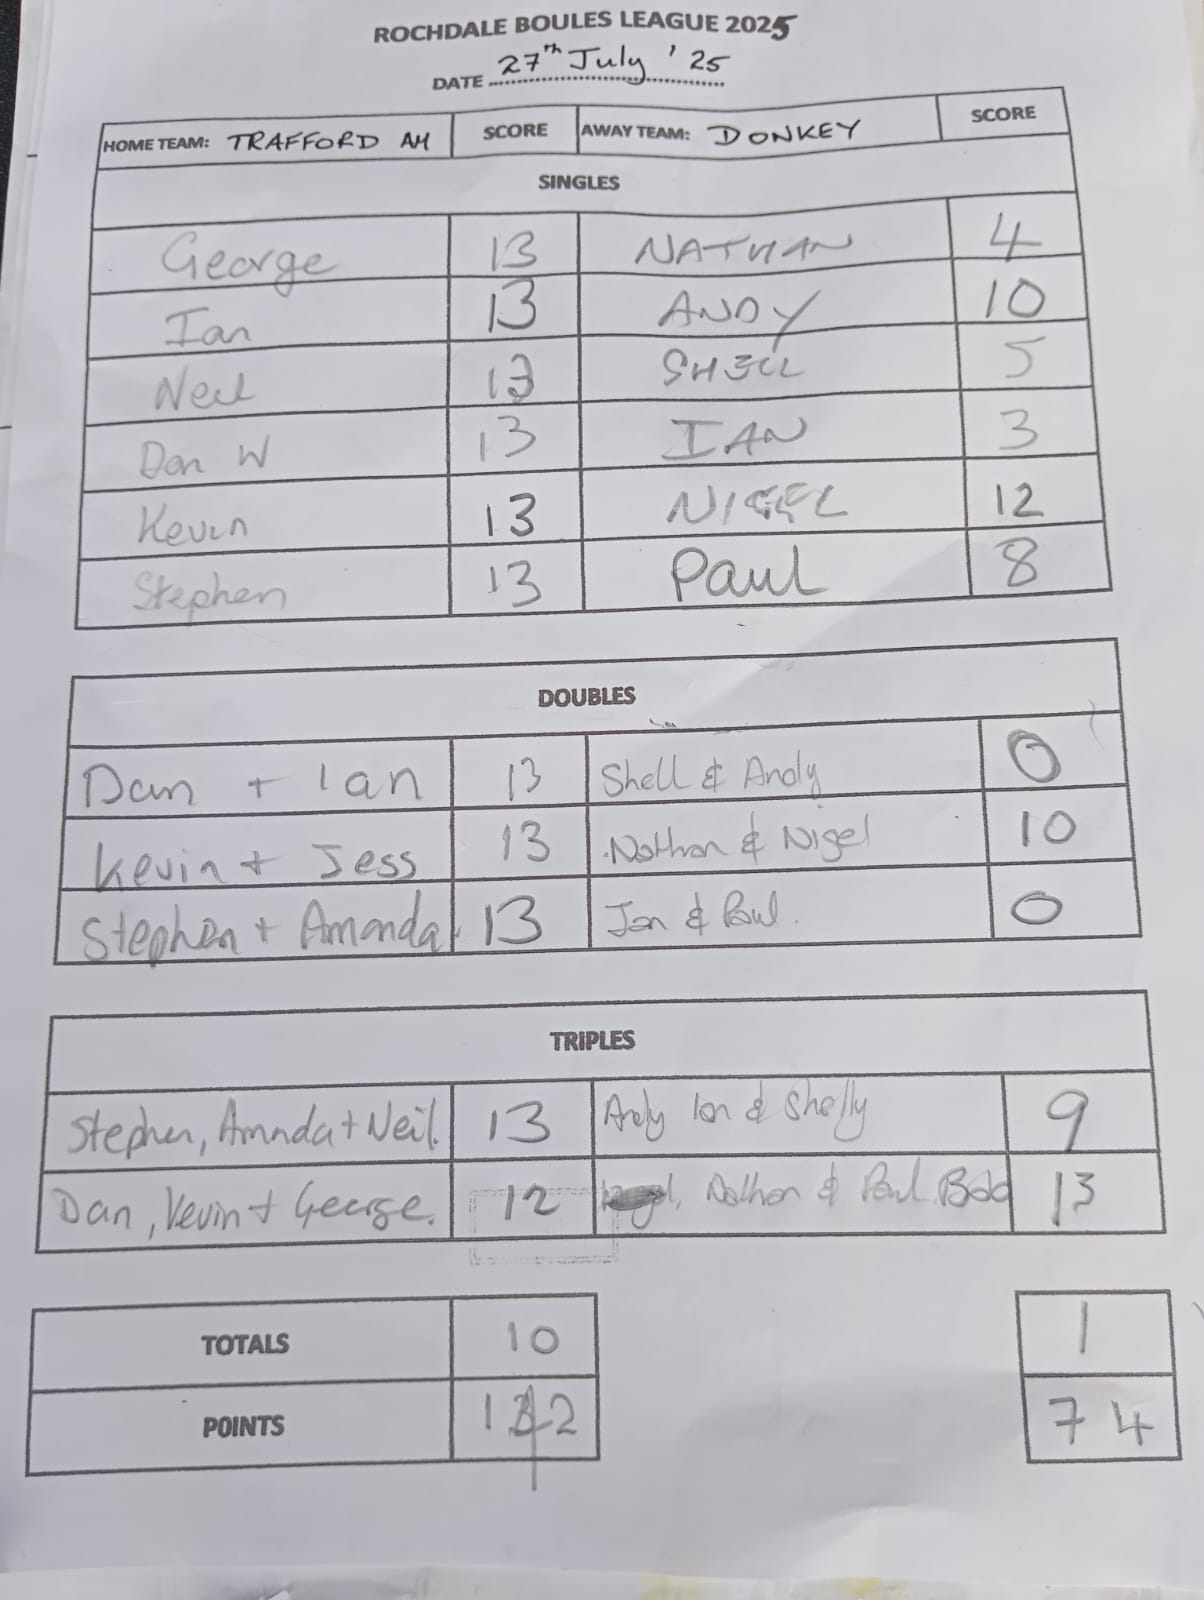 ROCHDALE BOULES LEAGUE 2025
DATE 27th July '25
HOME TEAM: TRAFFORD AM SCORE AWAY TEAM: DONKEY SCORE
SINGLES
George 13 NATHAN 4
Ian 13 ANDY 10
Neil 13 SHELL 5
Dan W 13 IAN 3
Kevin 13 NIGEL 12
Stephen 13 Paul 8
DOUBLES
Dan + Ian 13 Shell & Andy 0
Kevin + Jess 13 Nathan & Nigel 10
Stephen + Amanda 13 Ian & Paul. 0
TRIPLES
Stephen, Amnda + Neil. 13 Andy Ian & Shelly 9
Dan, Kevin + George. 12 Nathan & Paul. Bob 13
TOTALS 10 1
POINTS 142 74